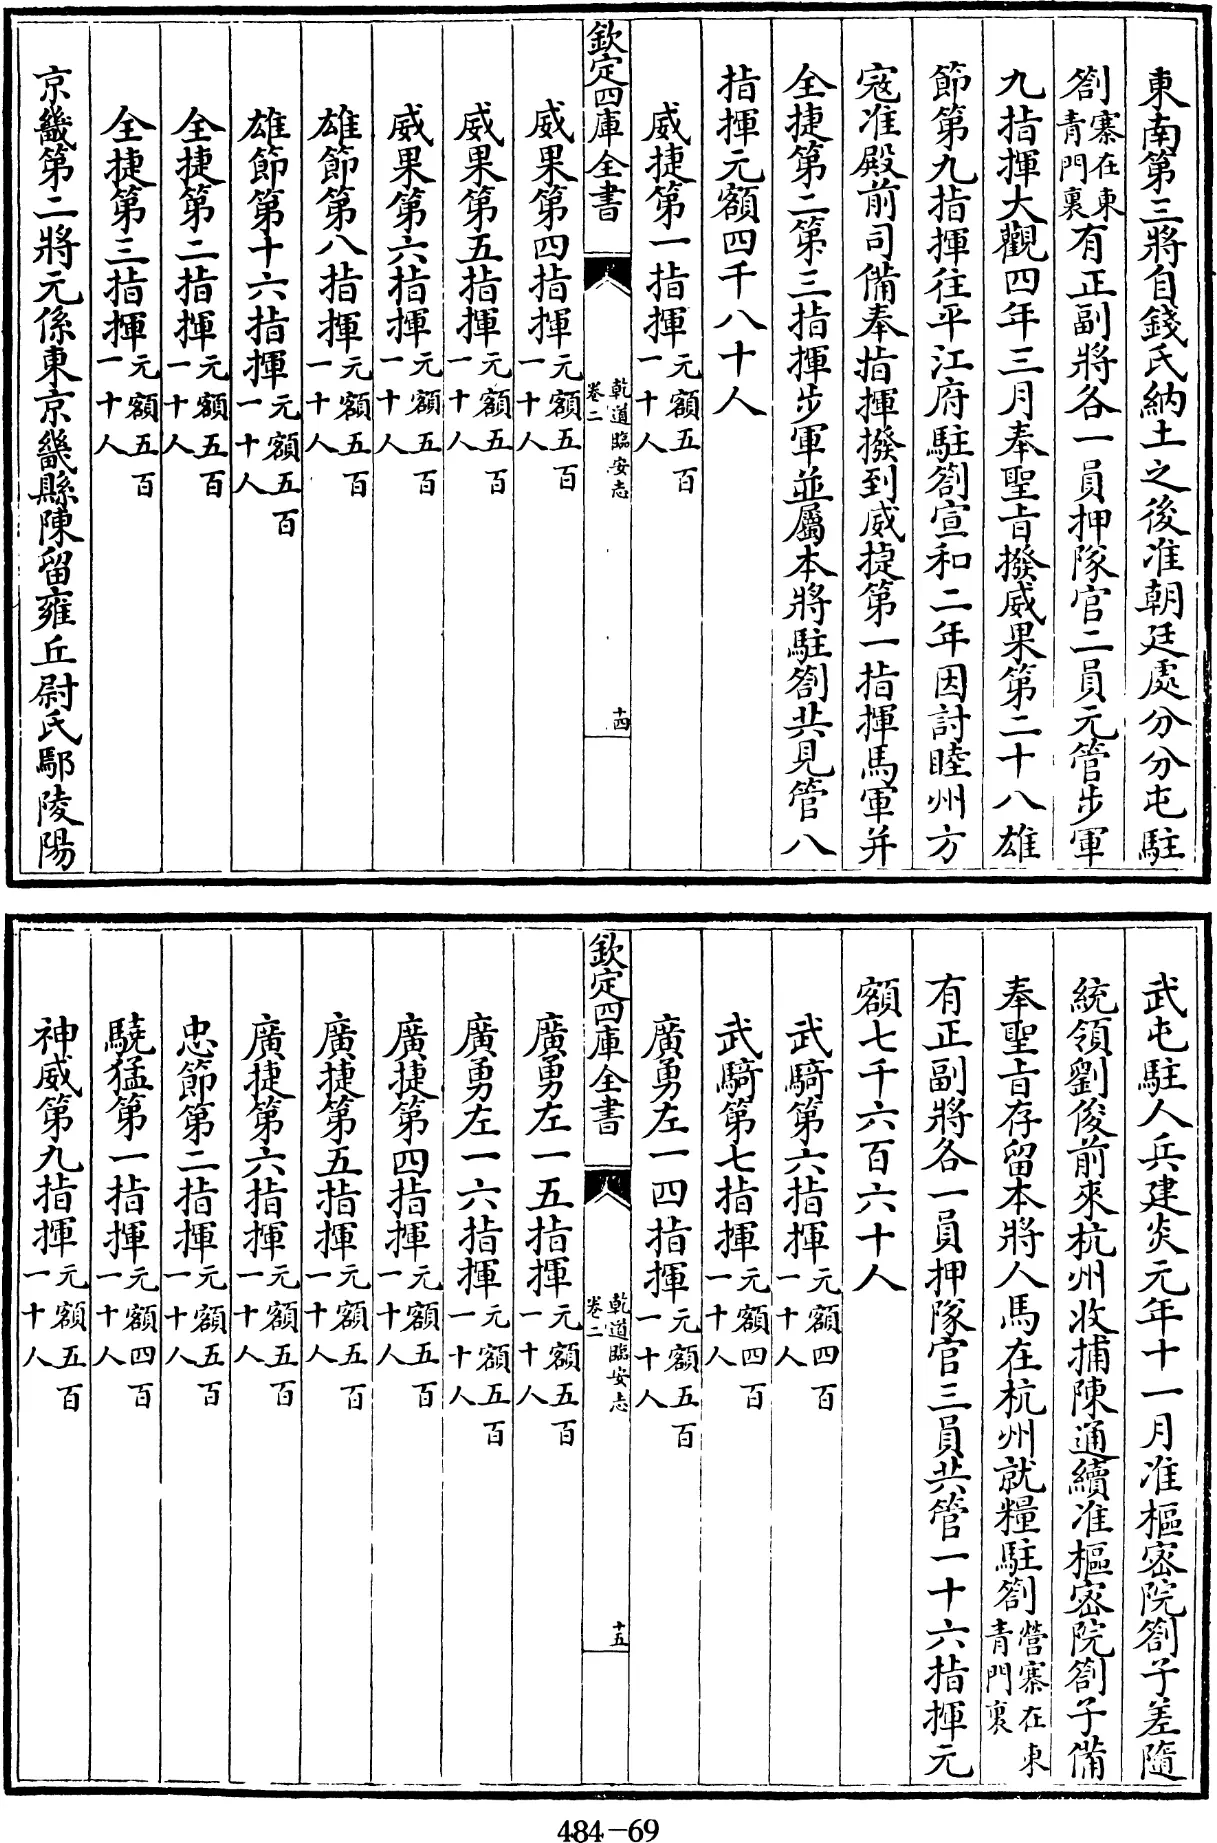 東南第三將自錢氏納土之後准朝廷處分分屯駐
劄寨在東青門裏有正副將各一員押隊官二員元管步軍
九指揮大觀四年三月奉聖旨撥威果第二十八雄
節第九指揮往平江府駐劄宣和二年因討睦州方
寇准殿前司備奉指揮撥到威捷第一指揮馬軍并
全捷第二第三指揮步軍並屬本將駐劄共見管八
指揮元額四千八十人
威捷第一指揮元額五百一十人
欽定四庫全書
乾道臨安志
卷二
十四
威果第四指揮元額五百一十人
威果第五指揮元額五百一十人
威果第六指揮元額五百一十人
雄節第八指揮元額五百一十人
雄節第十六指揮元額五百一十人
全捷第二指揮元額五百一十人
全捷第三指揮元額五百一十人
京畿第二將元係東京畿縣陳留雍丘尉氏鄢陵陽
武屯駐人兵建炎元年十一月准樞密院劄子差隨
統領劉俊前來杭州收捕陳通續准樞密院劄子備
奉聖旨存留本將人馬在杭州就糧駐劄營寨在東青門裏
有正副將各一員押隊官三員共管一十六指揮元
額七千六百六十人
武騎第六指揮元額四百一十人
武騎第七指揮元額四百一十人
廣勇左一四指揮元額五百一十人
欽定四庫全書
乾道臨安志
卷二
十五
廣勇左一五指揮元額五百一十人
廣勇左一六指揮元額五百一十人
廣捷第四指揮元額五百一十人
廣捷第五指揮元額五百一十人
廣捷第六指揮元額五百一十人
忠節第二指揮元額五百一十人
驍猛第一指揮元額四百一十人
神威第九指揮元額五百一十人
484-69